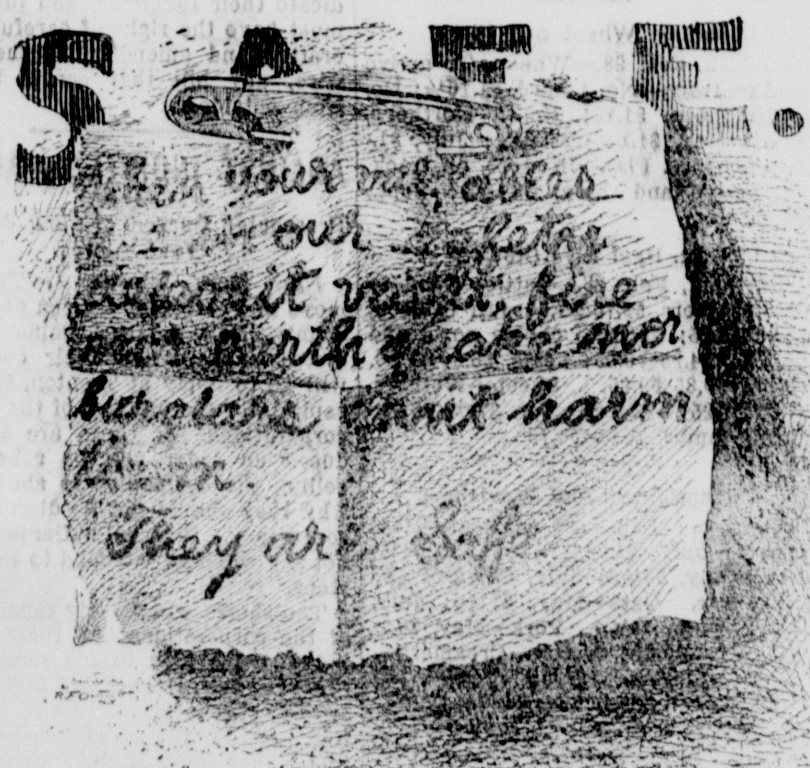 SAFE.
your valuables
our safety
deposit vault, fire
earth quake nor
burglars can't harm
them.
They are Safe